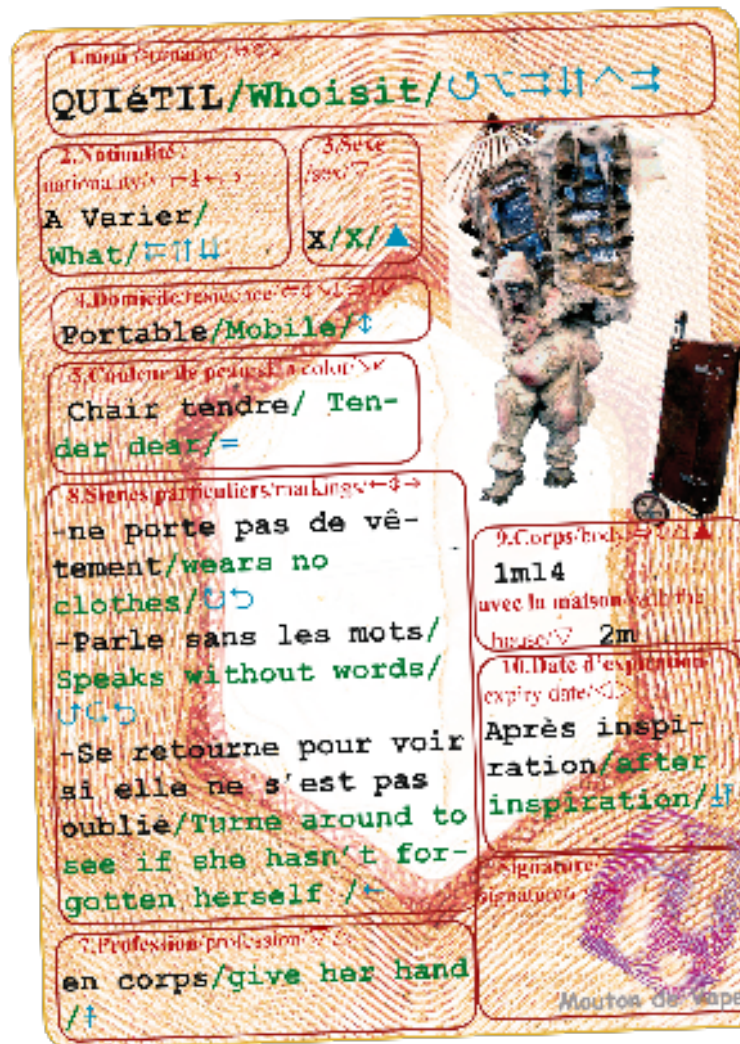 1.nom
QUIéTIL/Whoisit/↺⌥⇉⇅^⇉
2.Nationalité/
nationality/
A Varier/
What/⇇⇈⇊
3.Sexe
/sex/▽
X/X/▲
4.Domicile/residence/
Portable/Mobile/↕
5.Couleur de peau/skin color/
Chair tendre/ Ten-
der dear/=
8.Signes particuliers/markings/←⇕→
-ne porte pas de vê-
tement/wears no
clothes/↻⮌
-Parle sans les mots/
Speaks without words/
-Se retourne pour voir
si elle ne s'est pas
oublié/Turne around to
see if she hasn't for-
gotten herself /←
7.Profession/profession/
en corps/give her hand
/‡
9.Corps/body/
1m14
avec la maison/with the
house/▽ 2m
10.Date d'expiration
expiry date/
Après inspi-
ration/after
inspiration/
Signature/
signature/
Mouton de Vape